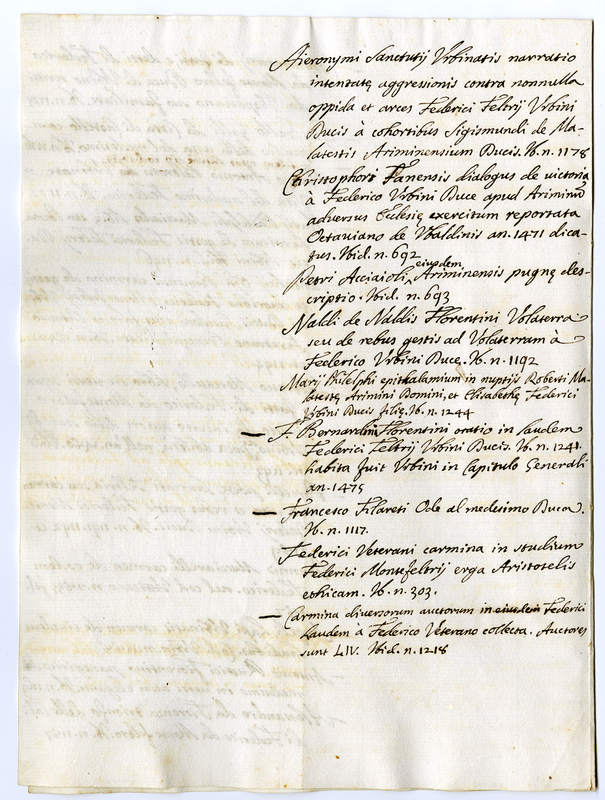 Hieronymi Sanctutij Urbinatis narratio
intentatę aggressionis contra nonnulla
oppida et arces Federici Feltrij Urbini
Ducis à cohortibus Sigismundi de Ma-
latestis Ariminensium Ducis. Ib. n. 1178
Christophori Fanensis dialogus de victoria
à Federico Urbini Duce apud Ariminũ
adversus Eclesię exercitum reportata
Octaviano de Ubaldinis an. 1471 dica-
tus. Ibid. n. 692
Petri Acciaioli, eiusdem Ariminensis pugnę des-
criptio. Ibid. n. 693
Naldi de Naldis Florentini Volaterra
seu de rebus gestis ad Volaterram à
Federico Urbini Duce. Ib. n. 1192
Marij Philelphi epithalamium in nuptijs Roberti Ma-
latestę Arimini Domini, et Elisabethę Federici
Urbini Ducis filię. Ib. n. 1244
— F. Bernardini Florentini oratio in laudem
Federici Feltrij Urbini Ducis. Ib. n. 1241.
habita fuit Urbini in Capitulo Generali
an. 1475
— Francesco Filareti Ode al medesimo Duca.
Ib. n. 1117.
Federici Veterani carmina in studium
Federici Montefeltrij erga Aristotelis
ethicam. Ib. n. 303.
— Carmina diversorum auctorum in eiusdem Federici
Laudem à Federico Veterano collecta. Auctores
sunt LIV. Ibid. n. 1218